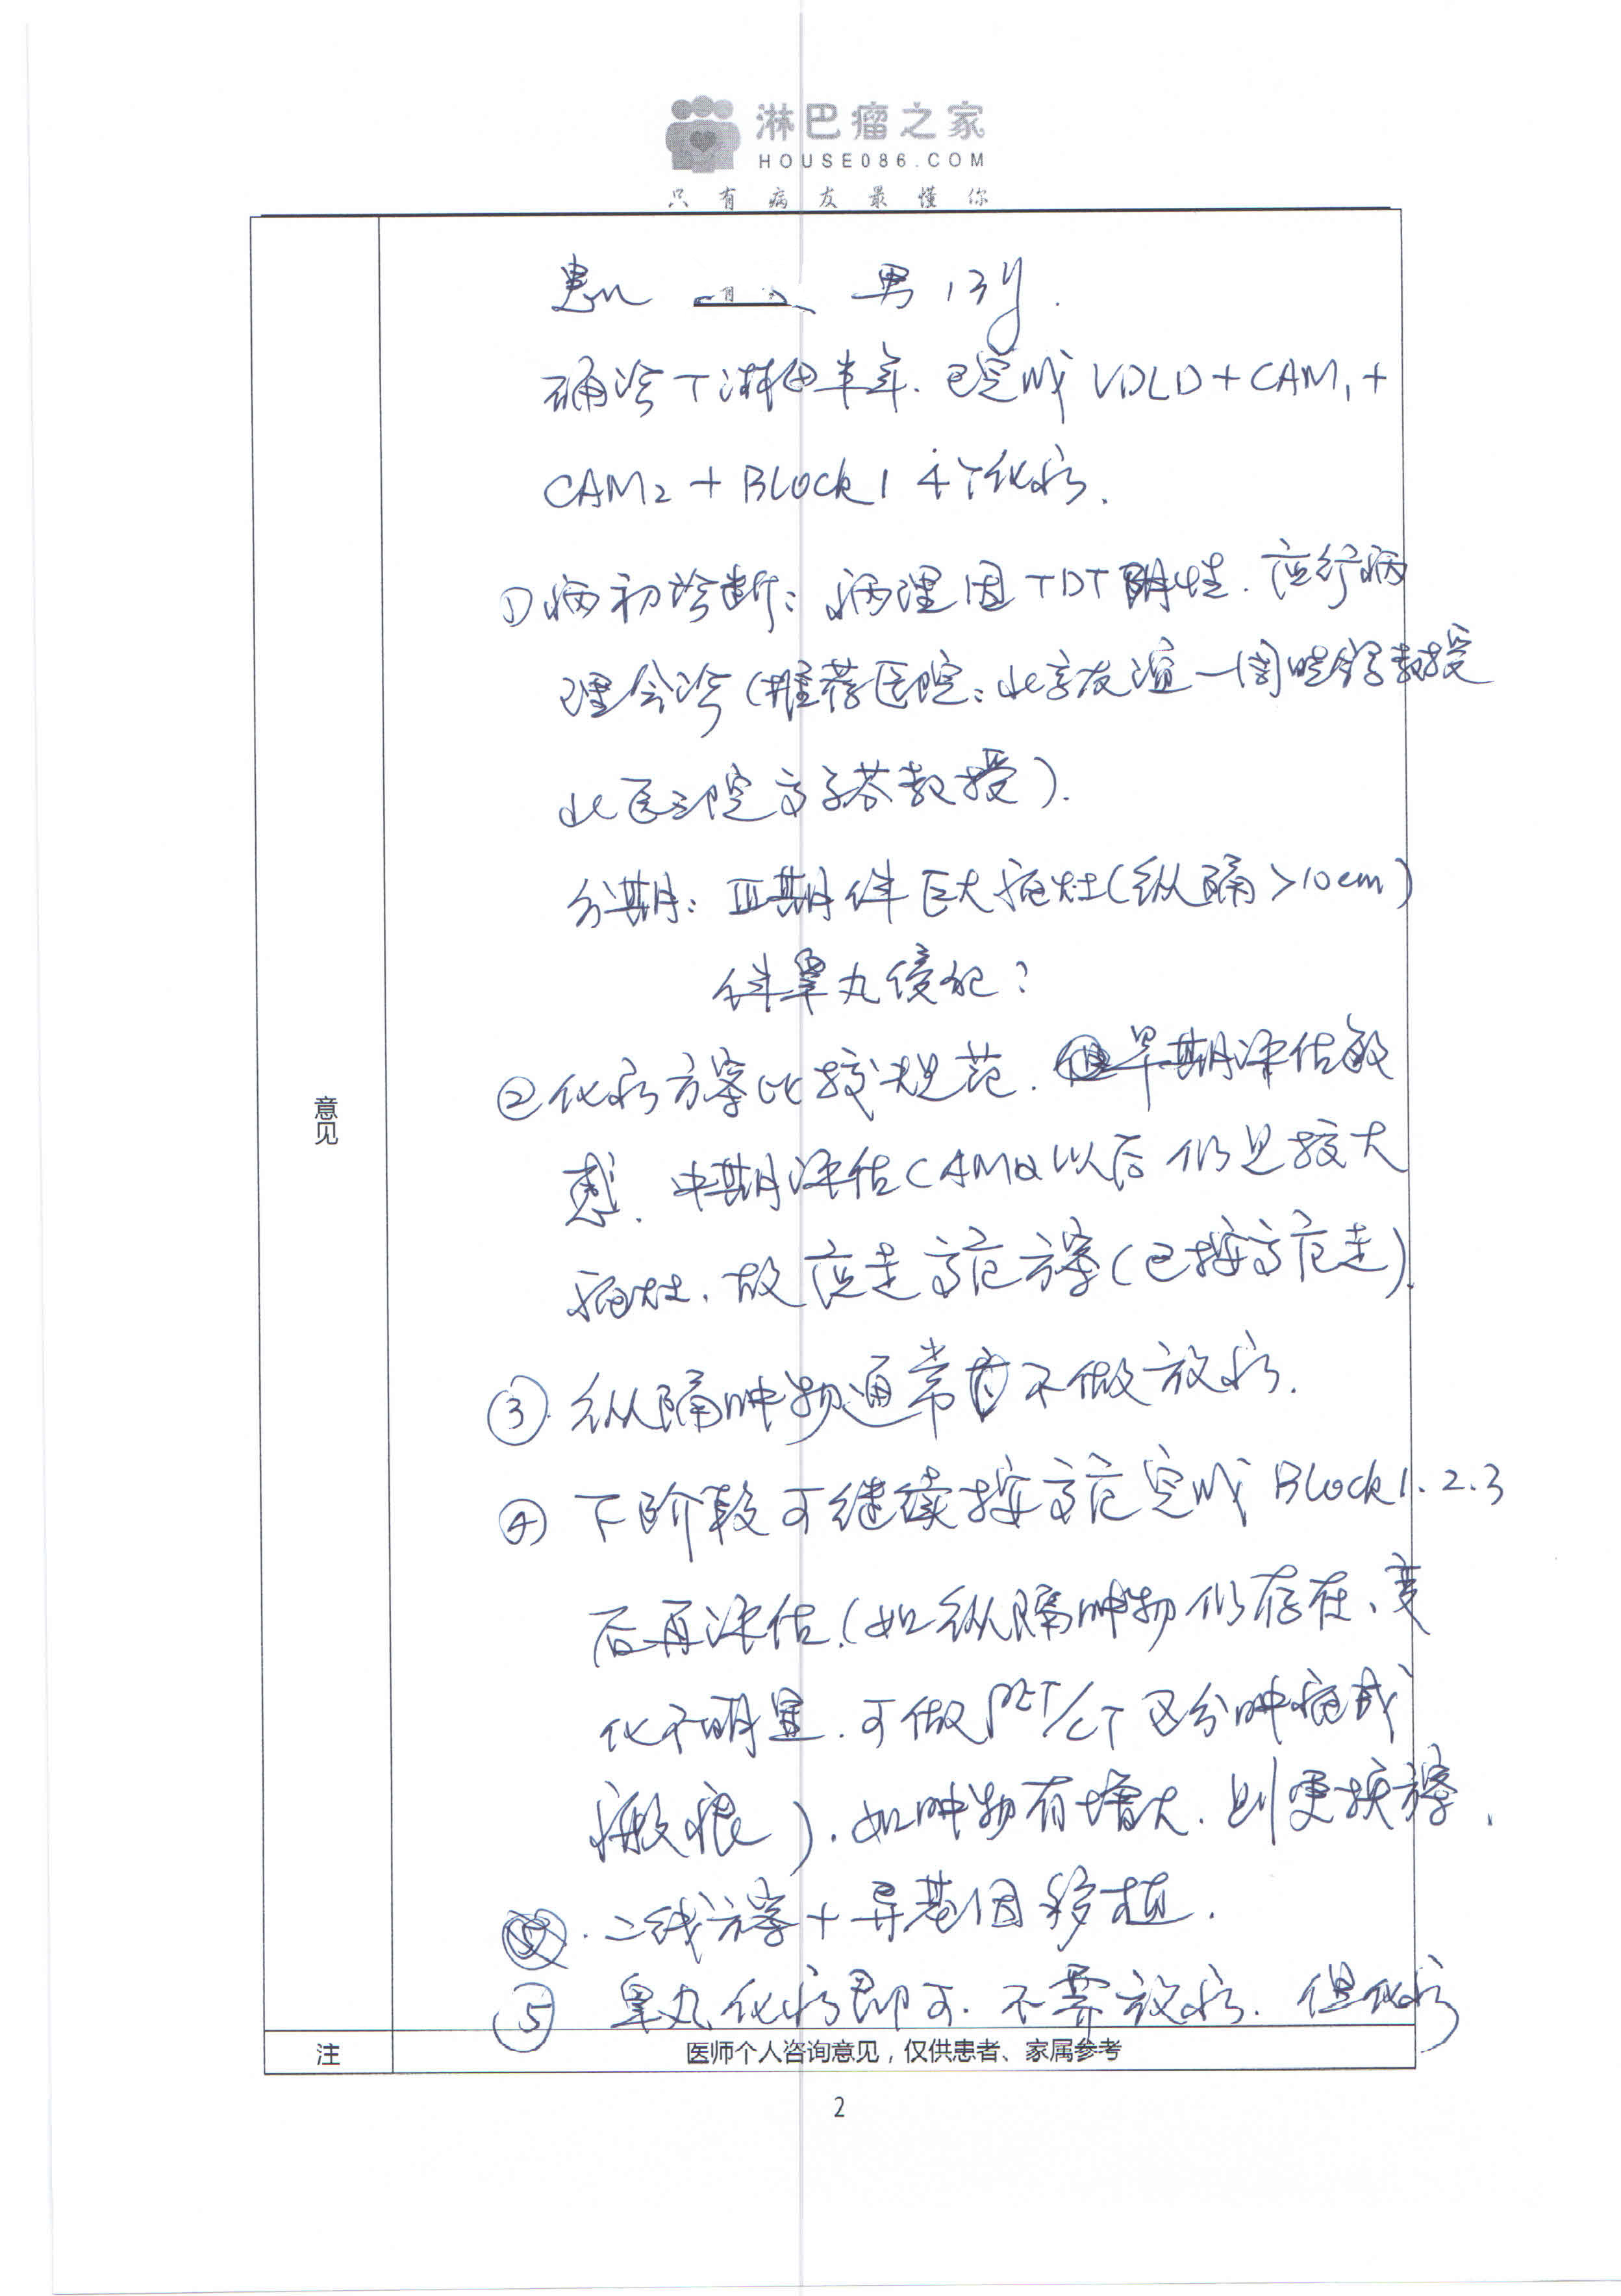 淋巴瘤之家
HOUSE086.COM
只有病友最懂你
患儿 男 13y.
确诊T淋母半年. 已完成 VDLD + CAM1 +
CAM2 + Block1 4个化疗.
① 病初诊断: 病理因TDT阴性. 应行病
理会诊 (推荐医院: 北京友谊—周 教授
北医三院高子芬教授).
分期: Ⅲ期伴巨大瘤灶(纵隔>10cm)
伴睾丸侵犯?
② 化疗方案比较规范. 但早期评估敏
感. 中期评估CAM2以后仍见较大
瘤灶. 故应走高危方案(已按高危走).
③ 纵隔肿物通常不做放疗.
④ 下阶段可继续按高危完成 Block1.2.3
后再评估.(如纵隔肿物仍存在、变
化不明显. 可做PET/CT区分肿瘤或
瘢痕). 如肿物有增大. 则更换方案.
二线方案 + 异基因移植.
⑤ 睾丸化疗即可. 不需放疗. 但化疗
意见
注 医师个人咨询意见，仅供患者、家属参考
2